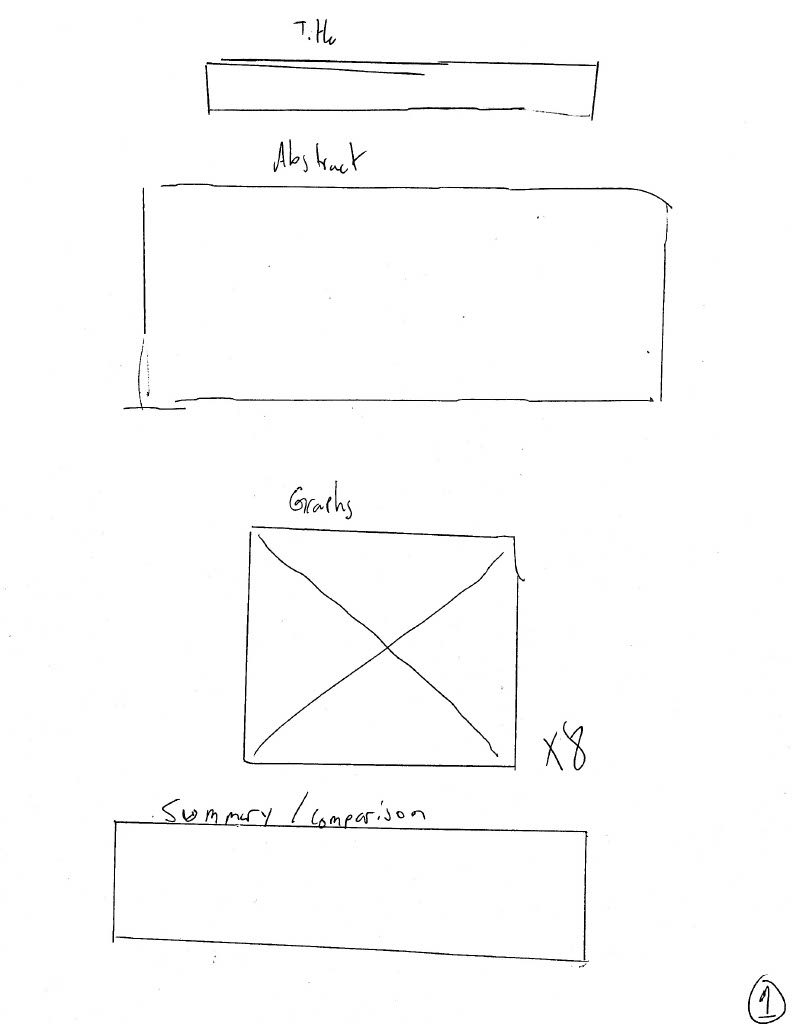 Title
Abstract
Graphs
x8
Summary / Comparison
1